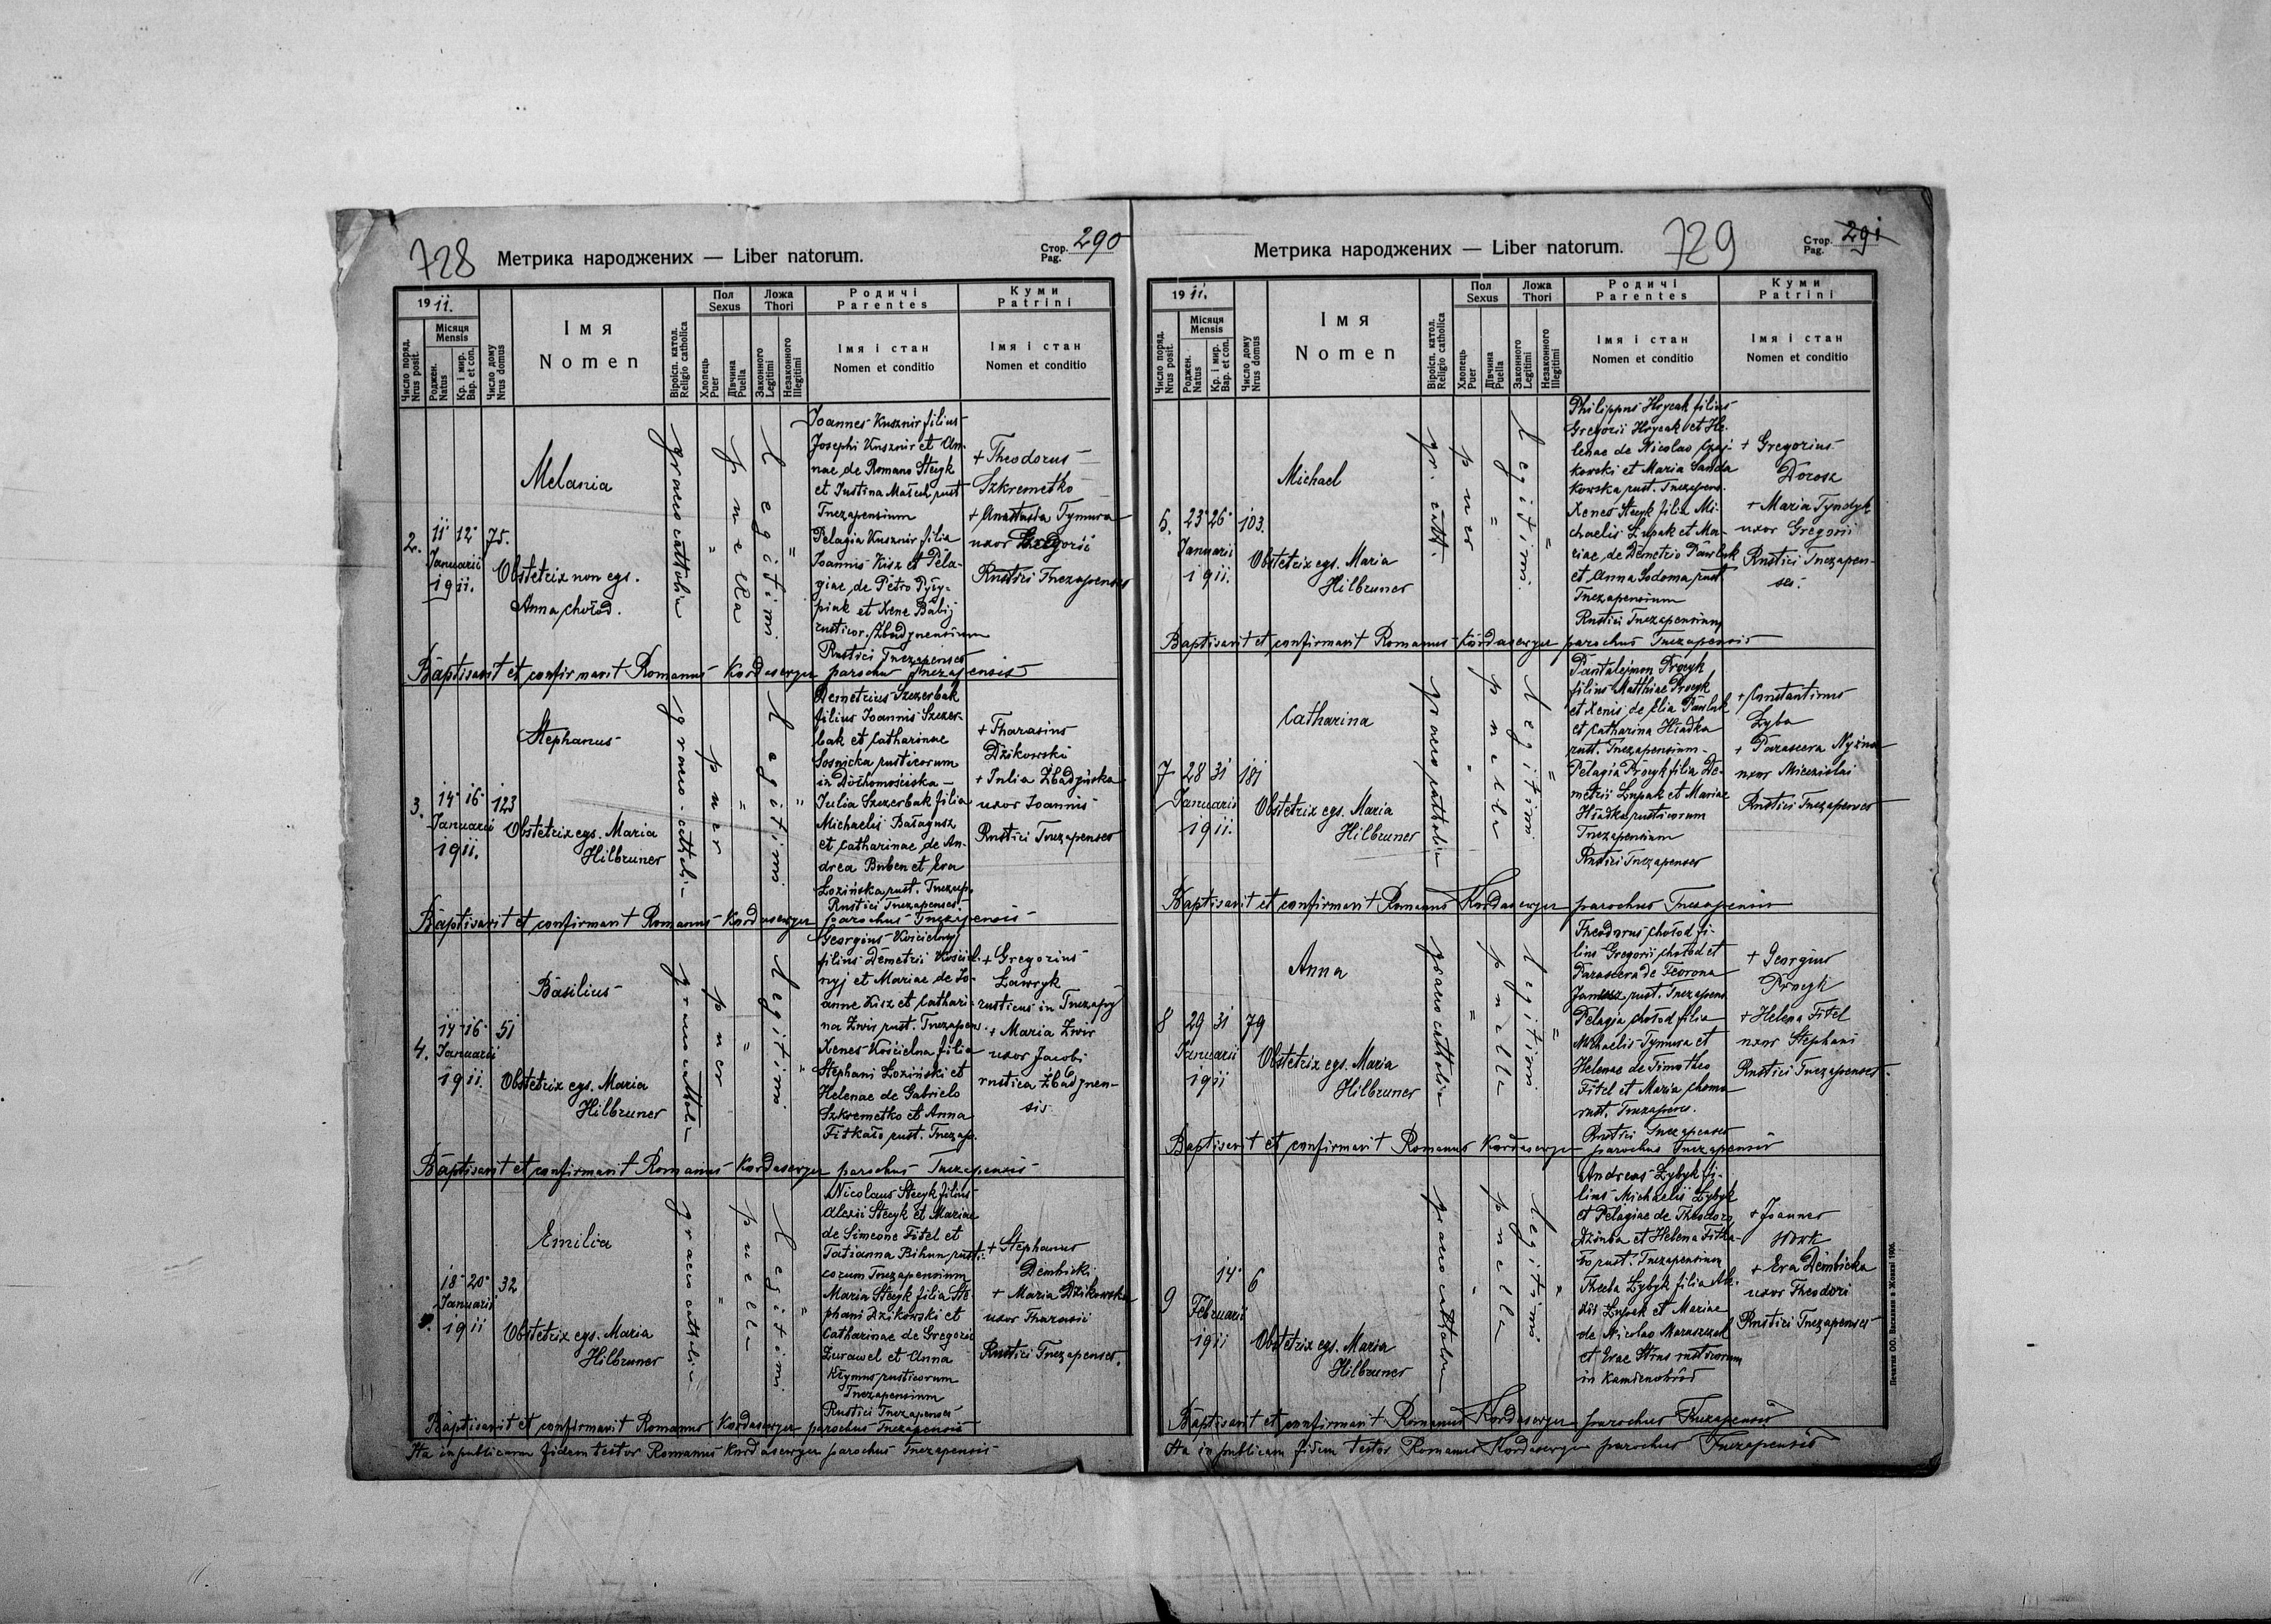 728 Метрика народжених — Liber natorum. Стор. Pag. 290
19 11.
Число поряд. Nrus posit.
Місяця Mensis
Роджен. Natus
Кр. і мир. Bap. et con.
Число дому Nrus domus
Імя Nomen
Віроісп. катол. Religio catholica
Пол Sexus
Хлопець Puer
Дівчина Puella
Ложа Thori
Законного Legitimi
Незаконного Illegitimi
Родичі Parentes
Імя і стан Nomen et conditio
Куми Patrini
Імя і стан Nomen et conditio
2. 11 12 75.
Januarii
1911.
Melania
Obstetrix non egs.
Anna Chołod.
graeco catholica
"
puella
Legitimi
"
Joannes Kusznir filius
Josephi Kusznir et An-
nae de Romano Stecyk
et Justina rust
Tuczapensium
Pelagia Kusznir filia
Joannis Kisz et Pela-
giae de Petro Pyry-
piak et Xene Babij
rusticor. Zbadynensium
Rustici Tuczapenses
+ Theodorus
Szkremetko
+ Anastasia Tymura
uxor Gregorii
Rustici Tuczapenses
Baptisavit et confirmavit Romanus Kordasewycz parochus Tuczapensis
3. 14 16 123
Januarii
1911.
Stephanus
Obstetrix egs. Maria
Hilbruner
graeco-catholica
puer
"
Legitimi
"
Demetrius Szczerbak
filius Joannis Szczer-
bak et Catharinae
Sosnicka rusticorum
in Dobromościska
Julia Szczerbak filia
Michaelis Bałagusz
et Catharinae de An-
drea Buben et Eva
Łozińska rust. Tuczap.
Rustici Tuczapenses.
+ Tharasius
Dzikowski
+ Julia Zbadyńska
uxor Joannis
Rustici Tuczapenses
Baptisavit et confirmavit Romanus Kordasewycz parochus Tuczapensis
4. 14 16 51
Januarii
1911.
Basilius
Obstetrix egs. Maria
Hilbruner
graeco catholica
puer
"
Legitimi
"
Georgius Kościelnyj
filius Demetrii Kościel-
nyj et Mariae de Jo-
anne Kisz et Cathari-
na Zwir rust. Tuczapens.
Xenes Kościelna filia
Stephani Łoziński et
Helenae de Gabrielo
Szkremetko et Anna
Fitkało rust. Tuczap.
+ Gregorius
Ławryk
rusticus in Tuczapy
+ Maria Zwir
uxor Jacobi
rustica Zbadynen-
sis
Baptisavit et confirmavit Romanus Kordasewycz parochus Tuczapensis
18 20 32
Januarii
1911
Emilia
Obstetrix egs. Maria
Hilbruner
graeco catholica
"
puella
Legitimi
"
Nicolaus Stecyk filius
Alexii Stecyk et Mariae
de Simeone Fitel et
Tatianna Bihun rusti-
corum Tuczapensium
Maria Stecyk filia Ste-
phani Dzikowski et
Catharinae de Gregorio
Zurawel et Anna
Klymus rusticorum
Tuczapensium
Rustici Tuczapenses
+ Stephanus
Dembicki
+ Maria Dzikowska
uxor Tharasii
Rustici Tuczapenses.
Baptisavit et confirmavit Romanus Kordasewycz parochus Tuczapensis
Ita in publicam fidem testor Romanus Kordasewycz parochus Tuczapensis
Метрика народжених — Liber natorum. 729 Стор. Pag. 291
19 11.
Число поряд. Nrus posit.
Місяця Mensis
Роджен. Natus
Кр. і мир. Bap. et con.
Число дому Nrus domus
Імя Nomen
Віроісп. катол. Religio catholica
Пол Sexus
Хлопець Puer
Дівчина Puella
Ложа Thori
Законного Legitimi
Незаконного Illegitimi
Родичі Parentes
Імя і стан Nomen et conditio
Куми Patrini
Імя і стан Nomen et conditio
6. 23 26 103.
Januarii
1911.
Michael
Obstetrix egs. Maria
Hilbruner
gr. cath.
puer
"
Legitimi
"
Philippus Hrycak filius
Gregorii Hrycak et He-
lenae de Nicolao Czaj-
kowski et Maria Sanda
kowska rust. Tuczapens.
Xenes Stecyk filia Mi-
chaelis Łupak et Ma-
riae de Demetrio Pawluk
et Anna Sodoma rust
Tuczapensium
Rustici Tuczapensium
+ Gregorius
Dorosz
+ Maria Tyndyk
uxor Gregorii
Rustici Tuczapen-
ses.
Baptisavit et confirmavit Romanus Kordasewycz parochus Tuczapensis
7 28 31 181
Januarii
1911.
Catharina
Obstetrix egs. Maria
Hilbruner
graeco catholica
"
puella
Legitimi
"
Pantalejmon Procyk
filius Matthiae Procyk
et Xenis de Elia Pawluk
et Catharina Hładka
rust. Tuczapensium
Pelagia Procyk filia De-
metrii Łupak et Mariae
Hładka rusticorum
Tuczapensium
Rustici Tuczapenses
+ Constantinus
Zyba
+ Parascera Nyżna
uxor Mieczislai
Rustici Tuczapenses
Baptisavit et confirmavit Romanus Kordasewycz parochus Tuczapensis
8 29 31 79
Januarii
1911
Anna
Obstetrix egs. Maria
Hilbruner
graeco catholica
"
puella
Legitimi
"
Theodorus Chołod fi-
lius Gregorii Chołod et
Parascera de Feorona
rust. Tuczapens
Pelagia Chołod filia
Michaelis Tymura et
Helenae de Timotheo
Fitel et Maria Choma
rust. Tuczapens.
Rustici Tuczapenses
+ Georgius
Procyk
+ Helena Fitel
uxor Stephani
Rustici Tuczapenses
Baptisavit et confirmavit Romanus Kordasewycz parochus Tuczapensis
9 14 6
Februarii
1911
Obstetrix egs. Maria
Hilbruner
graeco catholica
"
puella
Legitimi
"
Andreas Zybyk fi-
lius Michaelis Zybyk
et Pelagiae de Theodoro
Dziuba et Helena Fitka-
ło rust. Tuczapensium
Thecla Zybyk filia
Łupak et Mariae
de Nicolao Maruszczak
et Evae Strus rusticorum
in Kamienobród
+ Joannes
Wowk
+ Eva Dembicka
uxor Theodori
Rustici Tuczapenses
Baptisavit et confirmavit Romanus Kordasewycz parochus Tuczapensis
Ita in publicam fidem testor Romanus Kordasewycz parochus Tuczapensis
Печатня ОО. Василиян в Жовкві 1906.